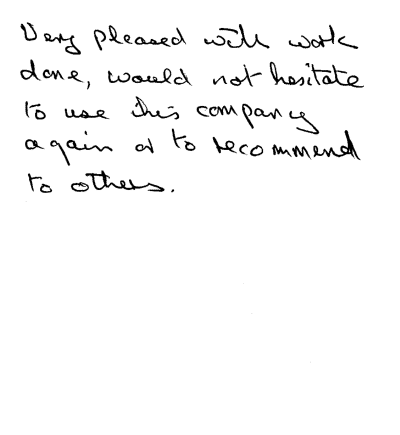 Very pleased with work
done, would not hesitate
to use this company
again or to recommend
to others.